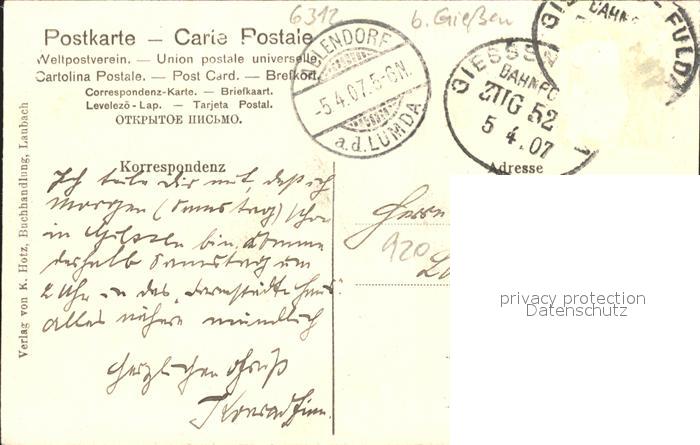 6312
b. Gießen
Postkarte — Carte Postale
Weltpostverein. — Union postale universelle
Cartolina Postale. — Post Card. — Brefkort.
Correspondenz-Karte. — Briefkaart.
Levelező-Lap. — Tarjeta Postal.
ОТКРЫТОЕ ПИСЬМО.
LENDORF
-5.4.07.5-6N.
a.d. LUMDA
GIESS
BAHNPO
ZUG 52
5 4.07
GI
BAHNP
FULDA
Korrespondenz
Adresse
Ich teile Dir mit, daß ich
morgen (Samstag) schon
in Giessen bin. Komme
deshalb Samstag um
2 Uhr in das "Darmstädter Haus".
Alles nähere mündlich
Herzlichen Gruß
Konrad
Herrn
920
Verlag von K. Hotz, Buchhandlung, Laubach
privacy protection
Datenschutz